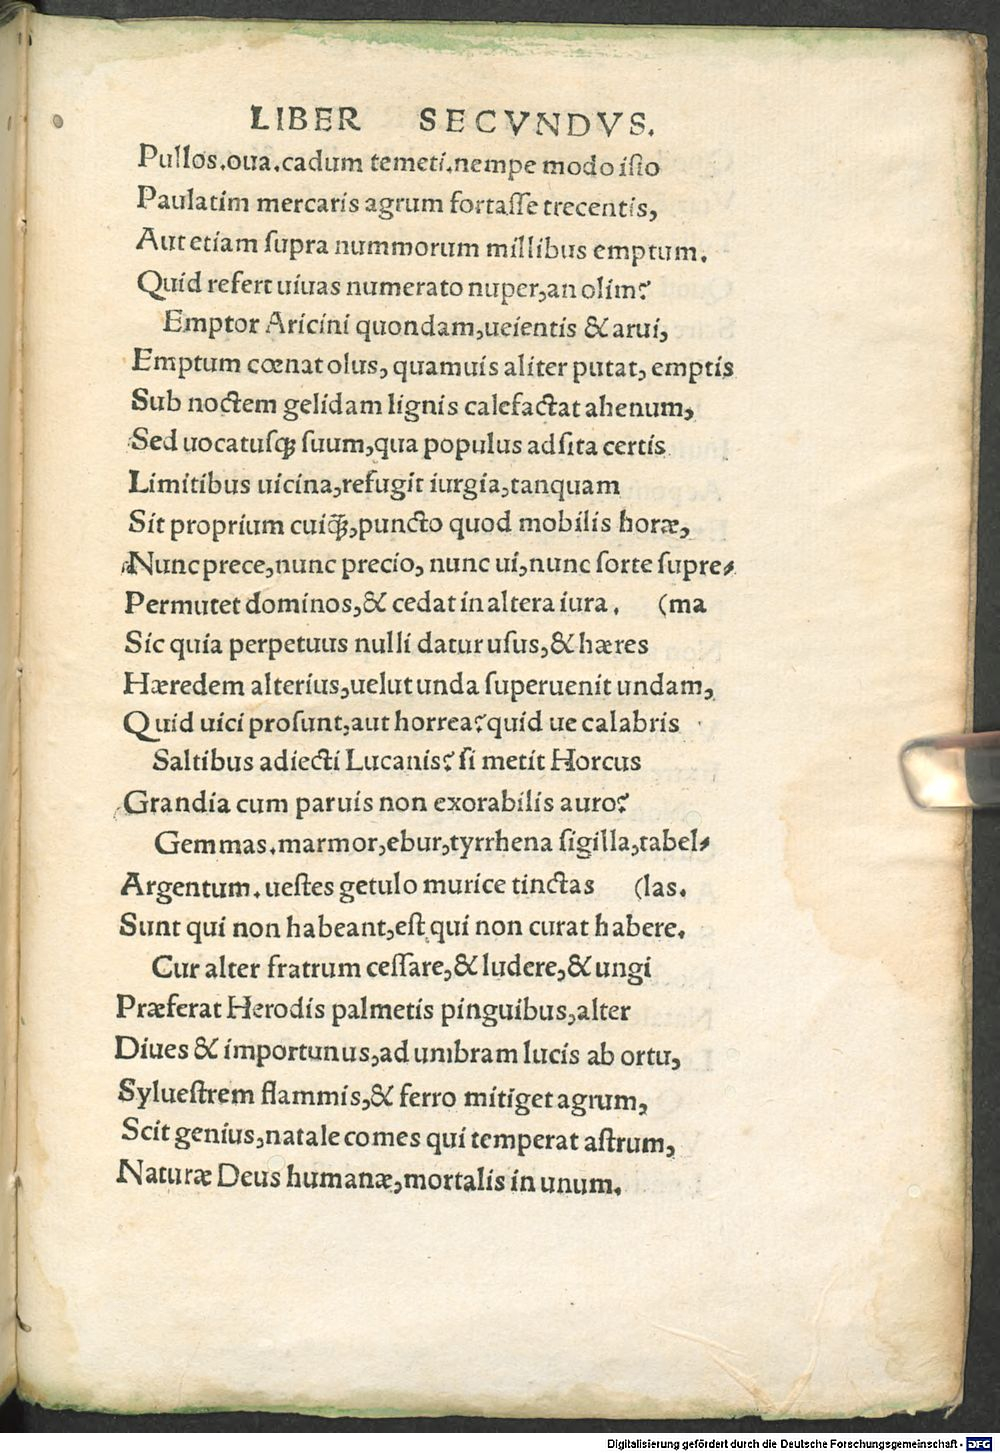 LIBER SECVNDVS.
Pullos.oua.cadum temeti.nempe modo isto
Paulatim mercaris agrum fortasse trecentis,
Aut etiam supra nummorum millibus emptum.
Quid refert uiuas numerato nuper,an olim?
Emptor Aricini quondam,ueientis & arui,
Emptum cœnat olus, quamuis aliter putat, emptis
Sub noctem gelidam lignis calefactat ahenum,
Sed uocatusq; suum,qua populus adsita certis
Limitibus uicina,refugit iurgia,tanquam
Sit proprium cuiq̃;,puncto quod mobilis horæ,
Nunc prece,nunc precio, nunc ui,nunc sorte supre-
Permutet dominos,& cedat in altera iura. (ma
Sic quia perpetuus nulli datur usus,& hæres
Hæredem alterius,uelut unda superuenit undam,
Quid uici prosunt,aut horrea?quid ue calabris
Saltibus adiecti Lucanis? si metit Horcus
Grandia cum paruis non exorabilis auro?
Gemmas.marmor,ebur,tyrrhena sigilla,tabel-
Argentum.uestes getulo murice tinctas (las.
Sunt qui non habeant,est qui non curat habere.
Cur alter fratrum cessare,& ludere,& ungi
Præferat Herodis palmetis pinguibus,alter
Diues & importunus,ad umbram lucis ab ortu,
Syluestrem flammis,& ferro mitiget agrum,
Scit genius,natale comes qui temperat astrum,
Naturæ Deus humanæ,mortalis in unum.
Digitalisierung gefördert durch die Deutsche Forschungsgemeinschaft - DFG